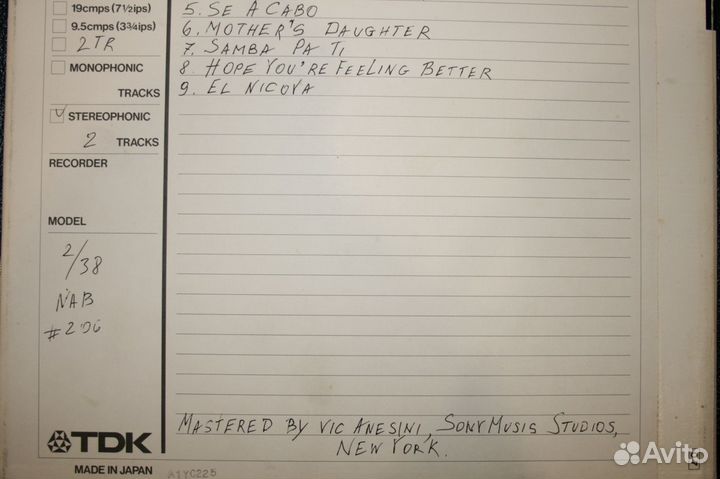 19cmps (7½ips)
5. SE A CABO
9.5cmps (3¾ips)
6. MOTHER'S DAUGHTER
2 TR
7. SAMBA PA TI
MONOPHONIC
8. HOPE YOU'RE FEELING BETTER
TRACKS
9. EL NICOYA
STEREOPHONIC
2 TRACKS
RECORDER
MODEL
2/38
NAB
#206
MASTERED BY VIC ANESINI, SONY MUSIS STUDIOS,
NEW YORK.
TDK
MADE IN JAPAN
A1YC225
Avito